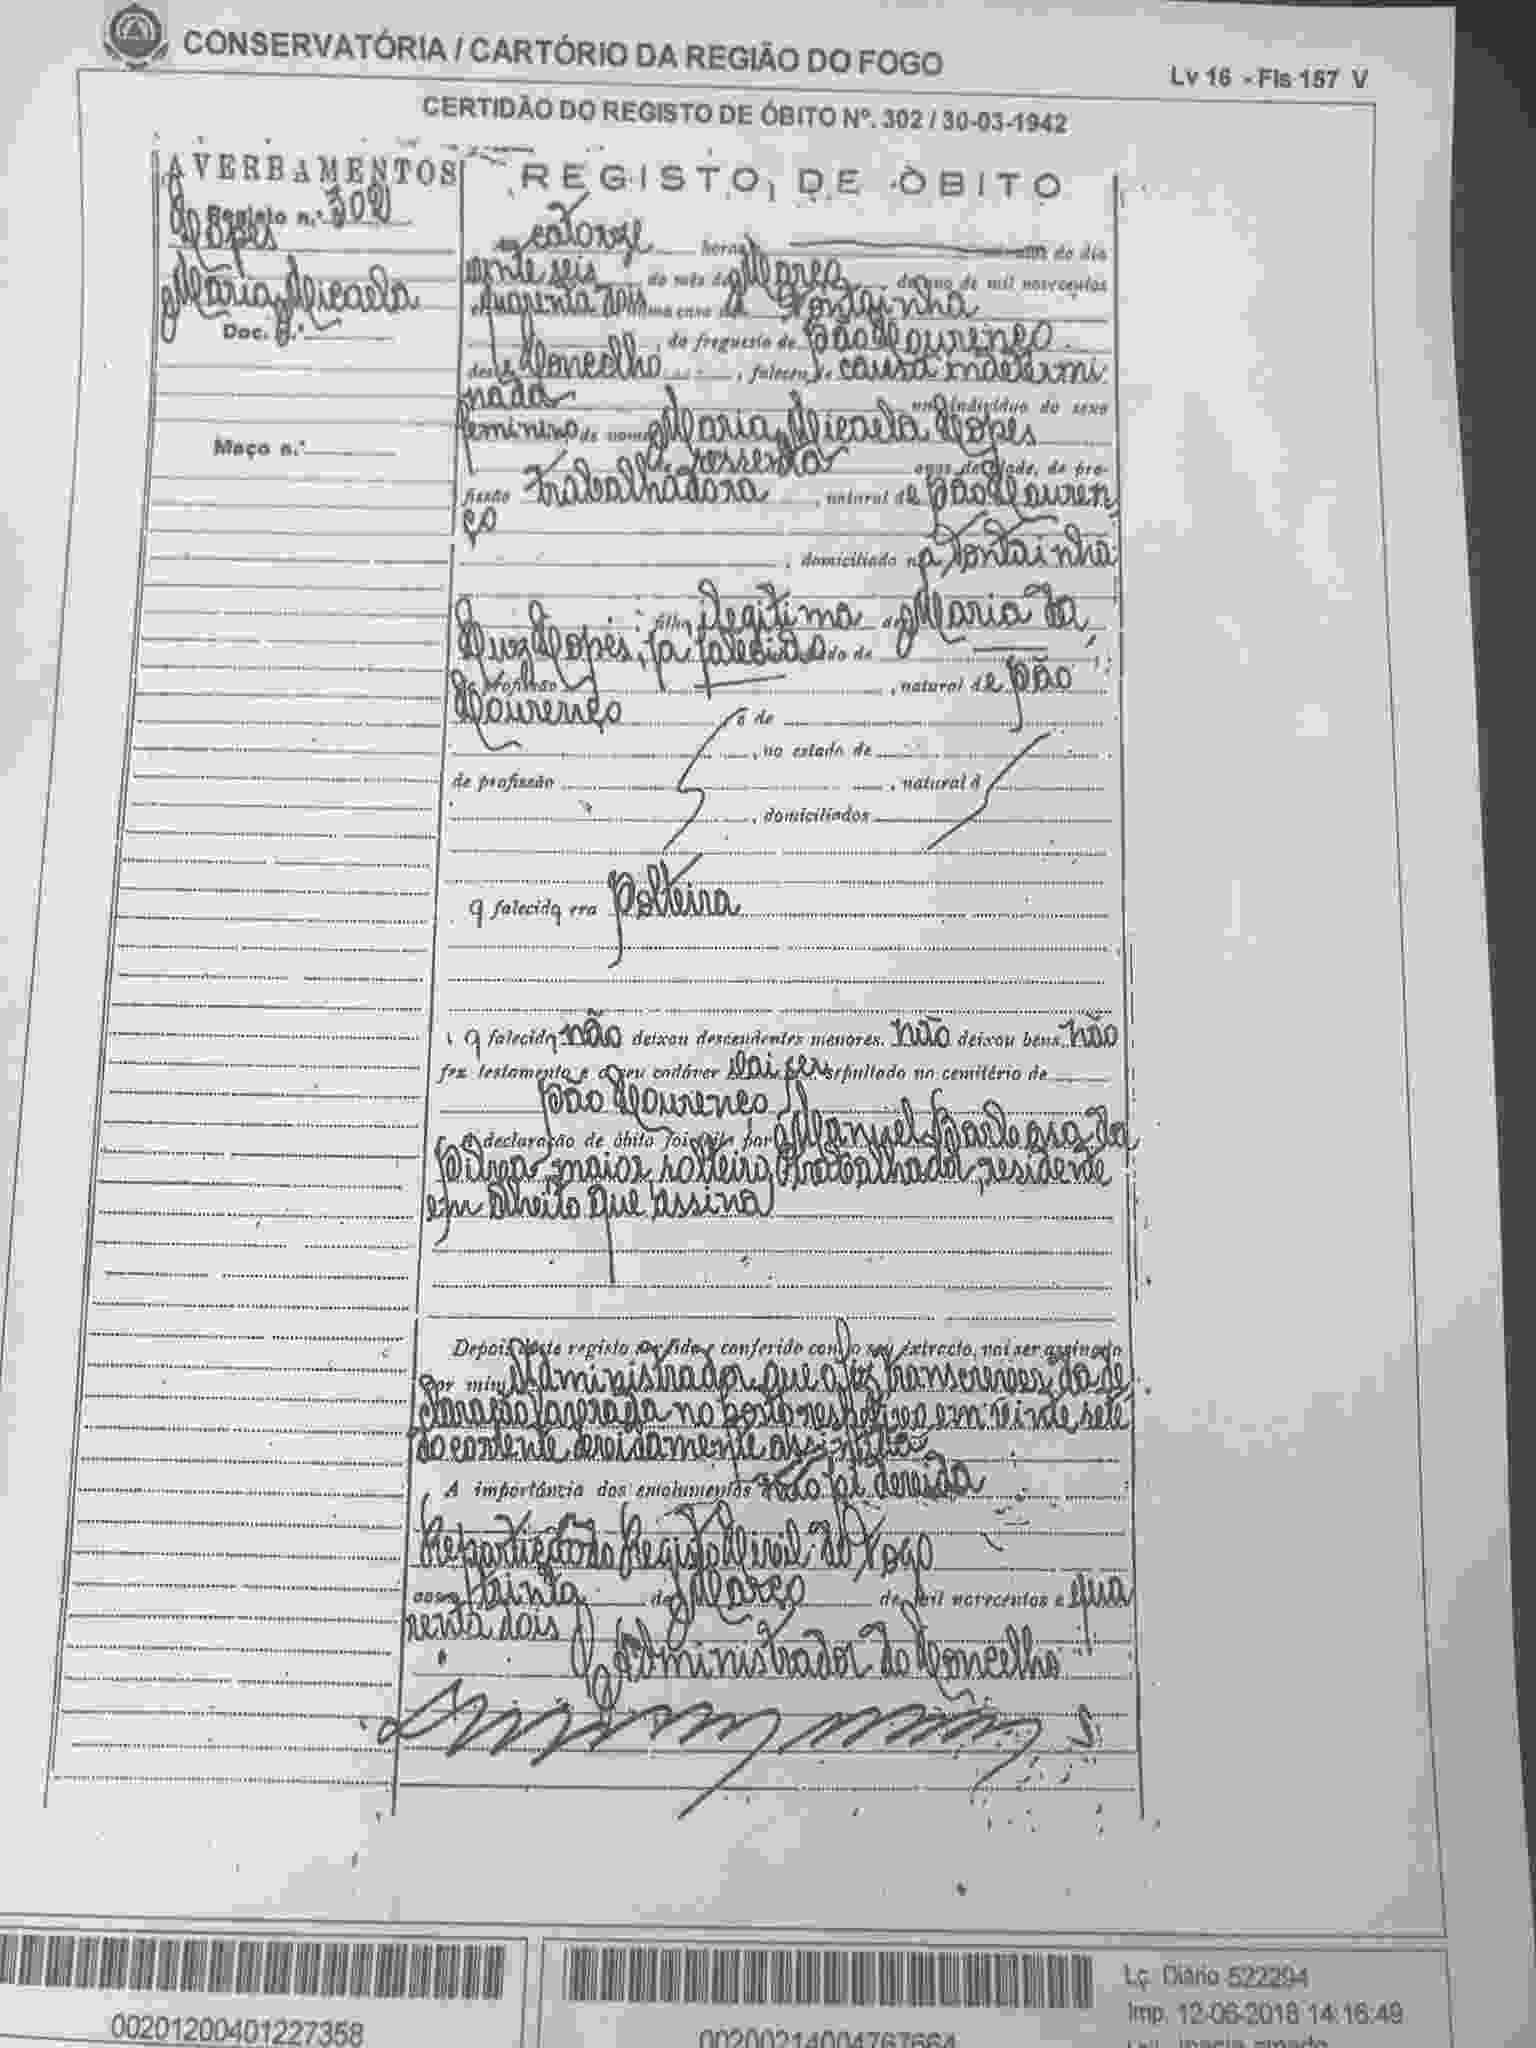 CONSERVATÓRIA / CARTÓRIO DA REGIÃO DO FOGO
Lv 16 - Fls 157 V
CERTIDÃO DO REGISTO DE ÓBITO Nº. 302 / 30-03-1942
AVERBAMENTOS
Registo n.º 302
Lopes
Maria Micaela
Doc. n.º
Maço n.º
REGISTO DE ÓBITO
catorze horas do dia
vinte seis do mês de Março do ano de mil novecentos
e quarenta dois numa casa Fontainha
da freguesia de São Lourenço
deste Concelho, faleceu de causa indetermi
nada um indivíduo do sexo
feminino de nome Maria Micaela Lopes
de sessenta anos de idade, de pro-
fissão Trabalhadora, natural de São Louren
ço
, domiciliado na Fontainha
filha ilegitima de Maria da
Luz Lopes, já falecida do de
de profissão , natural de São
Lourenço e de
, no estado de
de profissão , natural d
, domiciliados
A falecida era Solteira
A falecida não deixou descendentes menores, não deixou bens não
fez testamento e o seu cadáver vai ser sepultado no cemitério de
São Lourenço
A declaração de óbito foi feita por Manuel da
Silva maior solteiro, trabalhador, residente
em que assina
Depois deste registo ser lido e conferido com o seu extracto, vai ser assinado
por mim Administrador que o fez transcrever da de
claração no em vinte sete
do corrente devidamente
A importância dos emolumentos não foi devida
Repartição do Registo Civil do Fogo
aos trinta de Março de mil novecentos e qua
renta dois
O Administrador do Concelho
00201200401227358
00200214004767664
Lç. Diário 522294
Imp. 12-06-2018 14:16:49